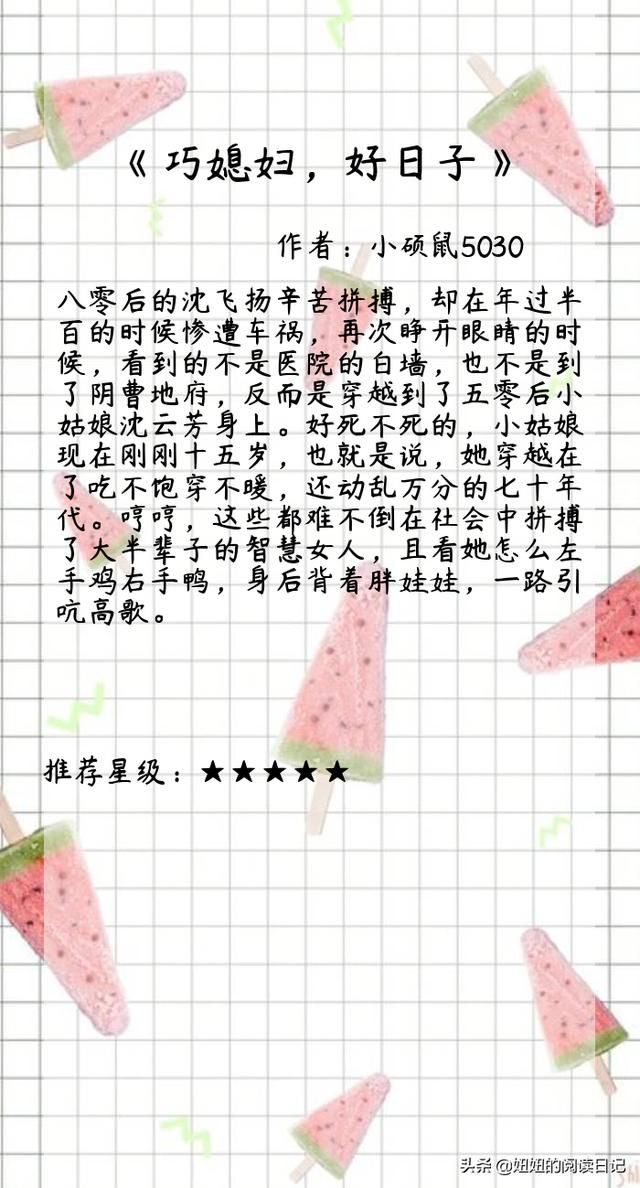 《巧媳妇，好日子》
作者：小硕鼠5030
八零后的沈飞扬辛苦拼搏，却在年过半
百的时候惨遭车祸，再次睁开眼睛的时
候，看到的不是医院的白墙，也不是到
了阴曹地府，反而是穿越到了五零后小
姑娘沈云芳身上。好死不死的，小姑娘
现在刚刚十五岁，也就是说，她穿越在
了吃不饱穿不暖，还动乱万分的七十年
代。哼哼，这些都难不倒在社会中拼搏
了大半辈子的智慧女人，且看她怎么左
手鸡右手鸭，身后背着胖娃娃，一路引
吭高歌。
推荐星级：★★★★★
头条 @妞妞的阅读日记